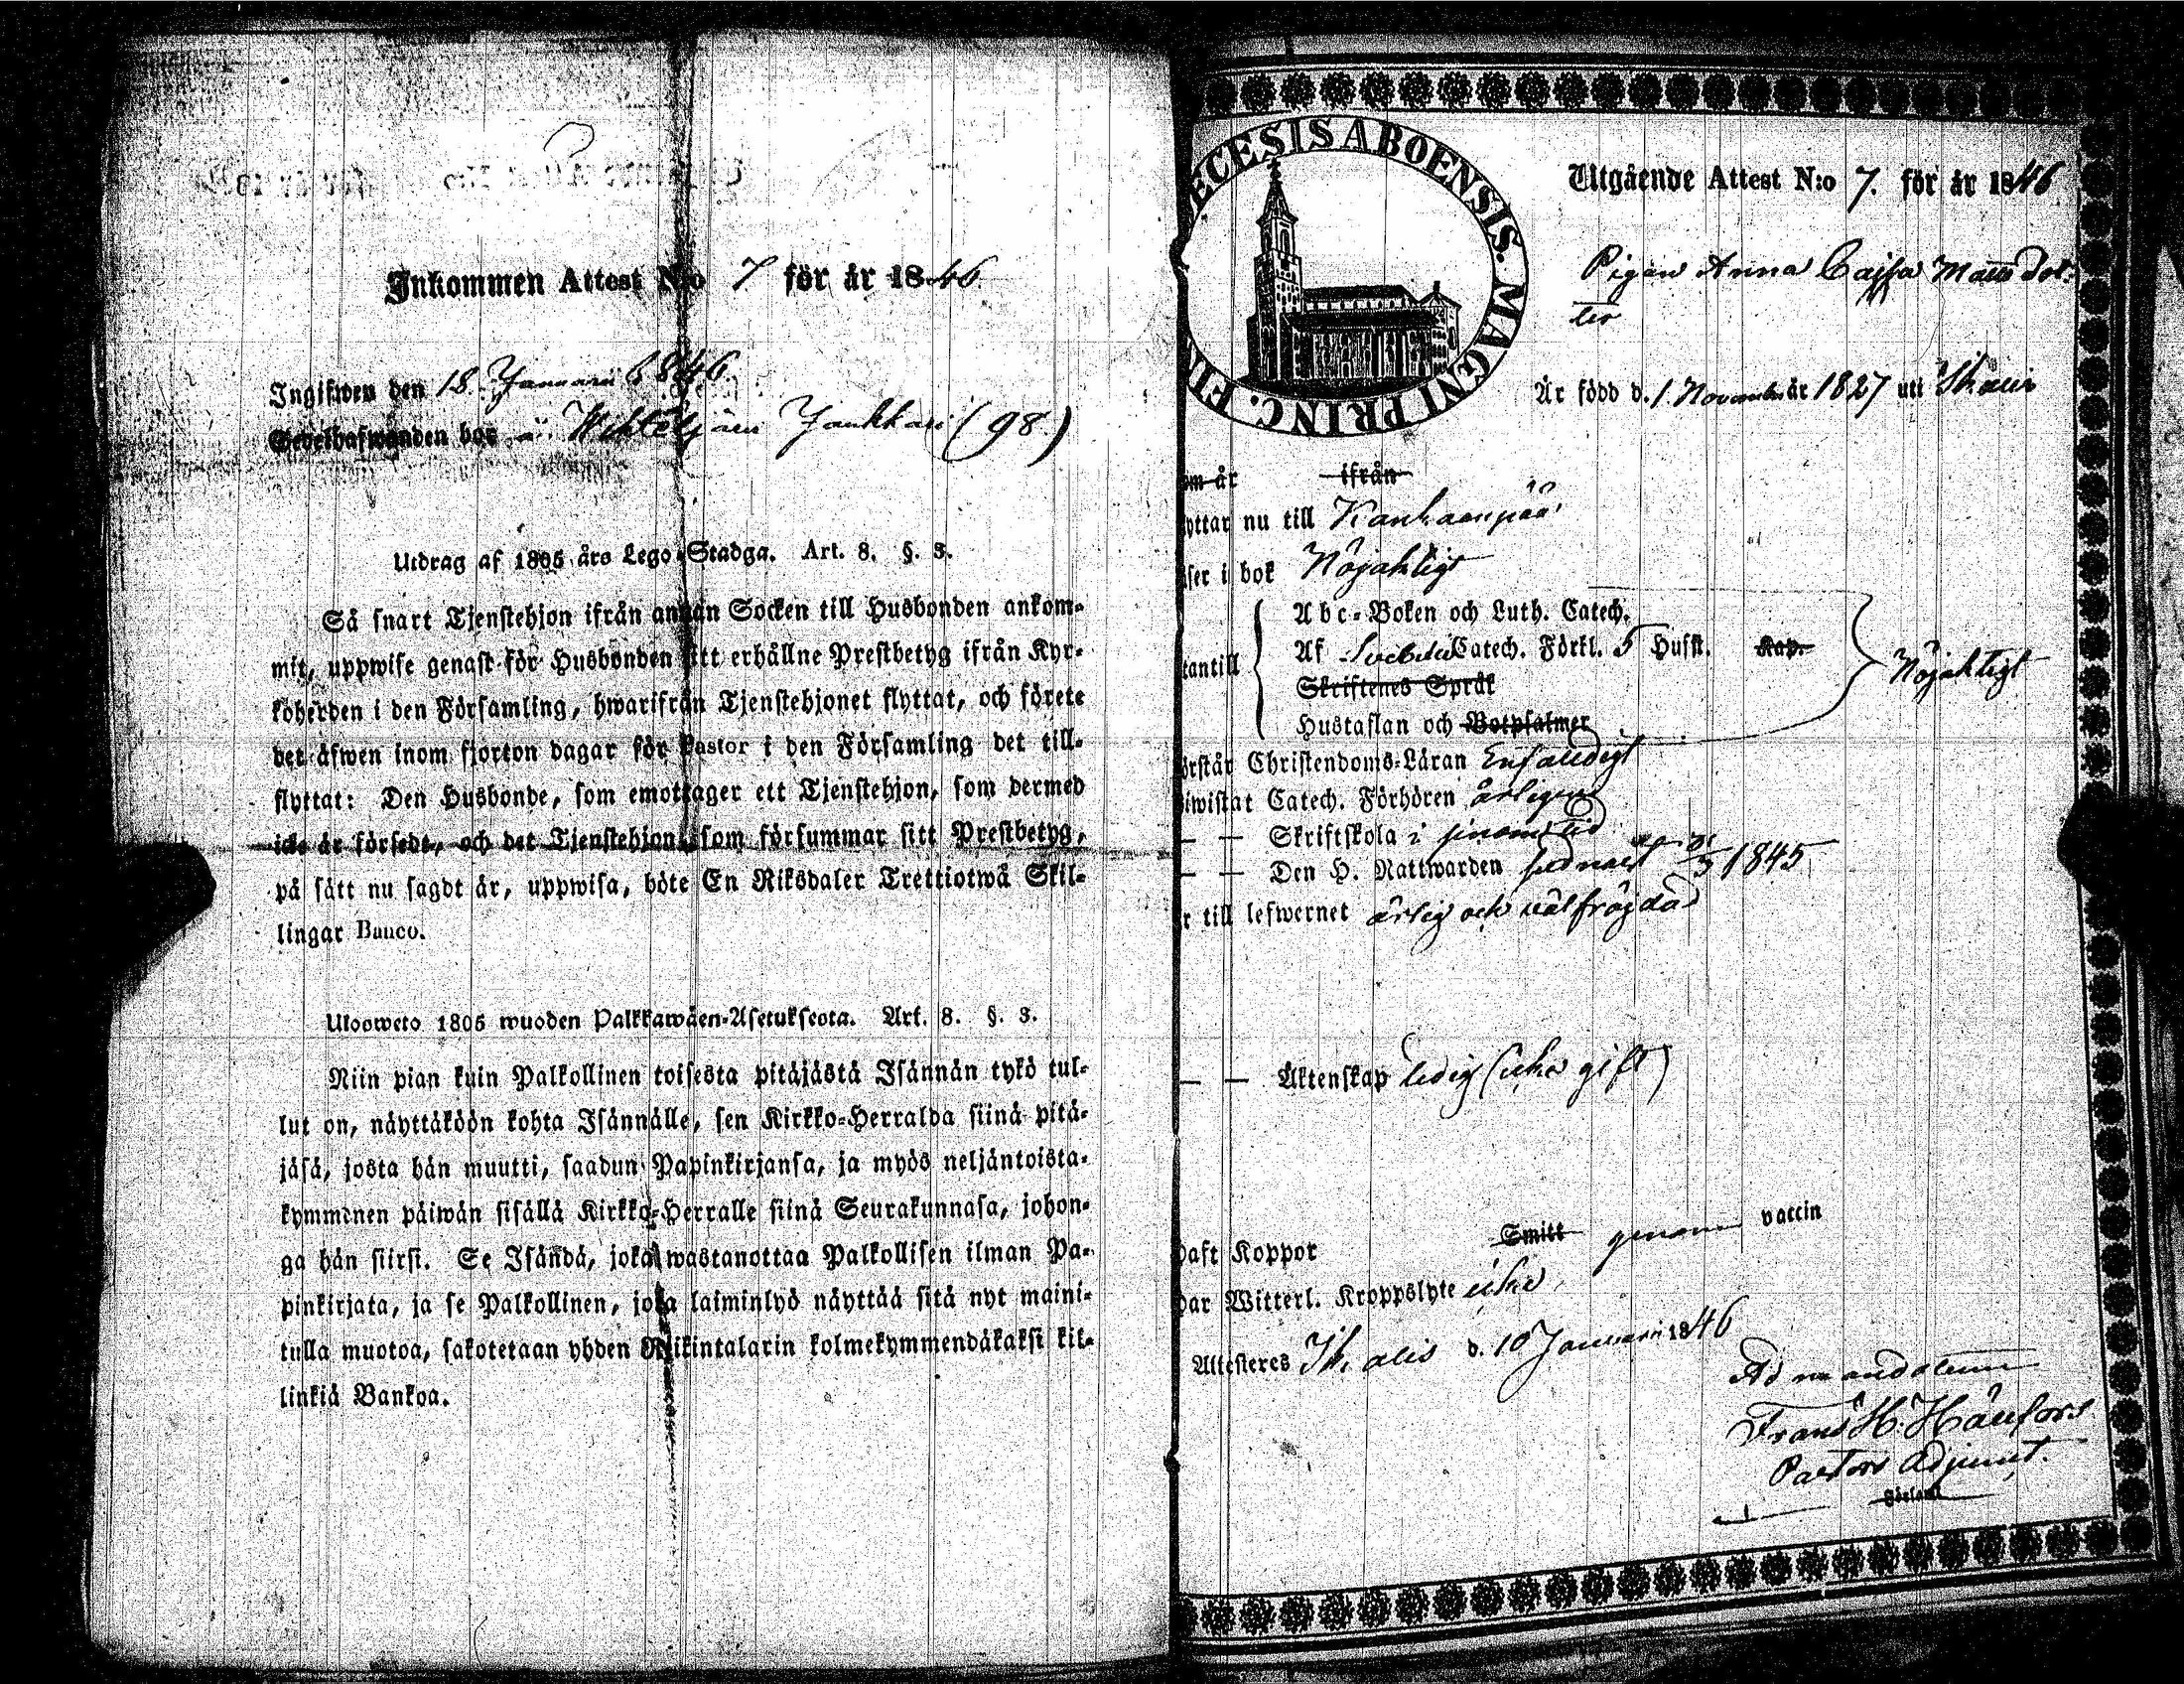 Inkommen Attest N:o 7 för år 1846.
Ingifwen den 18 Januarii 1846.
Jankkari (98.)
Utdrag af 1805 års Lego-Stadga. Art. 8. §. 3.
Så snart Tjenstehjon ifrån annan Socken till Husbonden ankom-
mit, uppwise genast för Husbonden sitt erhållne Prestbetyg ifrån Kyr-
koherden i den Församling, hwarifrån Tjenstehjonet flyttat, och förete
det äfwen inom fjorton dagar för Pastor i den Församling det till-
flyttat: Den Husbonde, som emottager ett Tjenstehjon, som dermed
icke är försedt, och det Tjenstehjon, som försummar sitt Prestbetyg,
på sätt nu sagdt är, uppwisa, böte En Riksdaler Trettiotwå Skil-
lingar Banco.
Ulosweto 1805 wuoden Palkkawäen-Asetuksesta. Art. 8. §. 3.
Niin pian kuin Palkollinen toisesta pitäjästä Isännän tykö tul-
lut on, näyttäköön kohta Isännälle, sen Kirkko-Herralda siinä pitä-
jäsä, josta hän muutti, saadun Papinkirjansa, ja myös neljäntoista-
kymmenen päiwän sisällä Kirkko-Herralle siinä Seurakunnasa, johon-
ga hän siirsi. Se Isändä, joka wastanottaa Palkollisen ilman Pa-
pinkirjata, ja se Palkollinen, joka laiminlyö näyttää sitä nyt maini-
tulla muotoa, sakotetaan yhden Riikintalarin kolmekymmendäkaksi kil-
linkiä Bankoa.
ECESIS ABOENSIS. MAGNI PRINC. FIN
Utgående Attest N:o 7. för år 1846
Pigan Anna Cajsa Matts Dot-
ter
Är född d. 1 November år 1827 uti Ikalis
om år ifrån
yttar nu till Kankaanpää
äser i bok Nöjaktigt
tantill
Abc-Boken och Luth. Catech.
Af Svebelii Catech. Förkl. 5 Husst. Kap.
Skriftenes Språk
Hustaflan och Botpsalmer
Nöjaktigt
örstår Christendoms-Läran Enfaldigt
iwistat Catech. Förhören årligen
— — Skriftskola i sinom tid
— — Den H. Nattwarden sednast 1845
r till lefwernet ärlig och välfrögdad
— — Äktenskap ledig (icke gift)
haft Koppor Smitt genom vaccin
har Witterl. Kroppslyte icke
Attesteras Ikalis d. 10 Januarii 1846
Ad mandatum
Frans H. Hänfors
Pastors Adjunct.